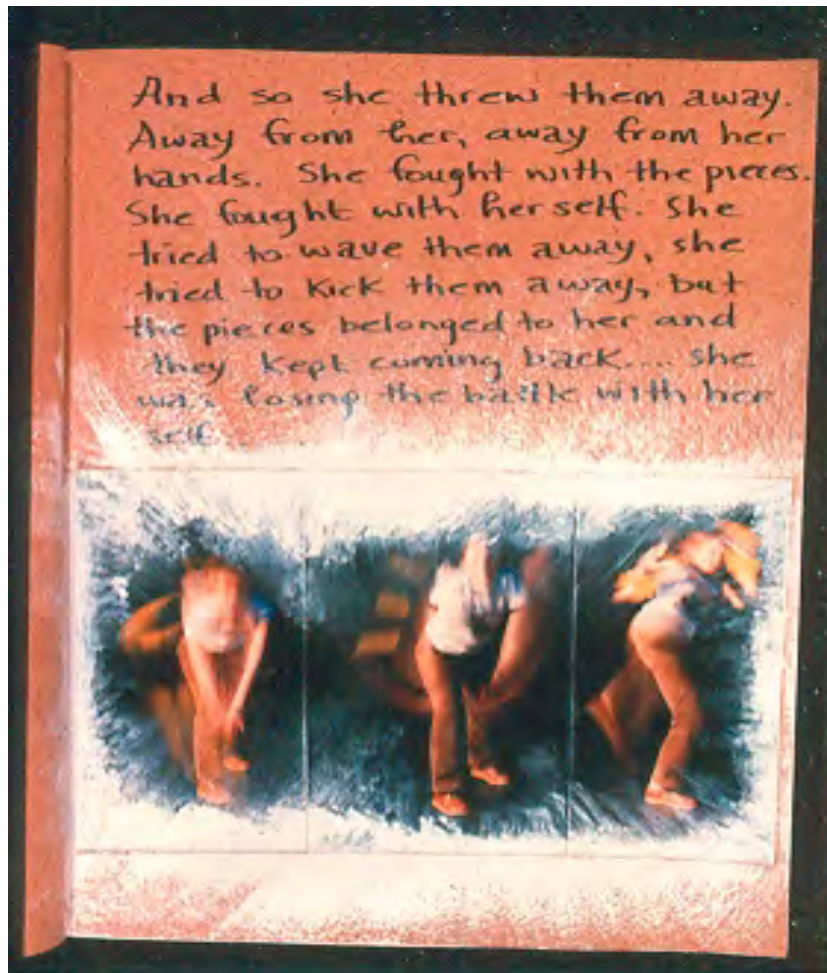 And so she threw them away.
Away from her, away from her
hands. She fought with the pieces.
She fought with her self. She
tried to wave them away, she
tried to kick them away, but
the pieces belonged to her and
they kept coming back.... she
was losing the battle with her
self